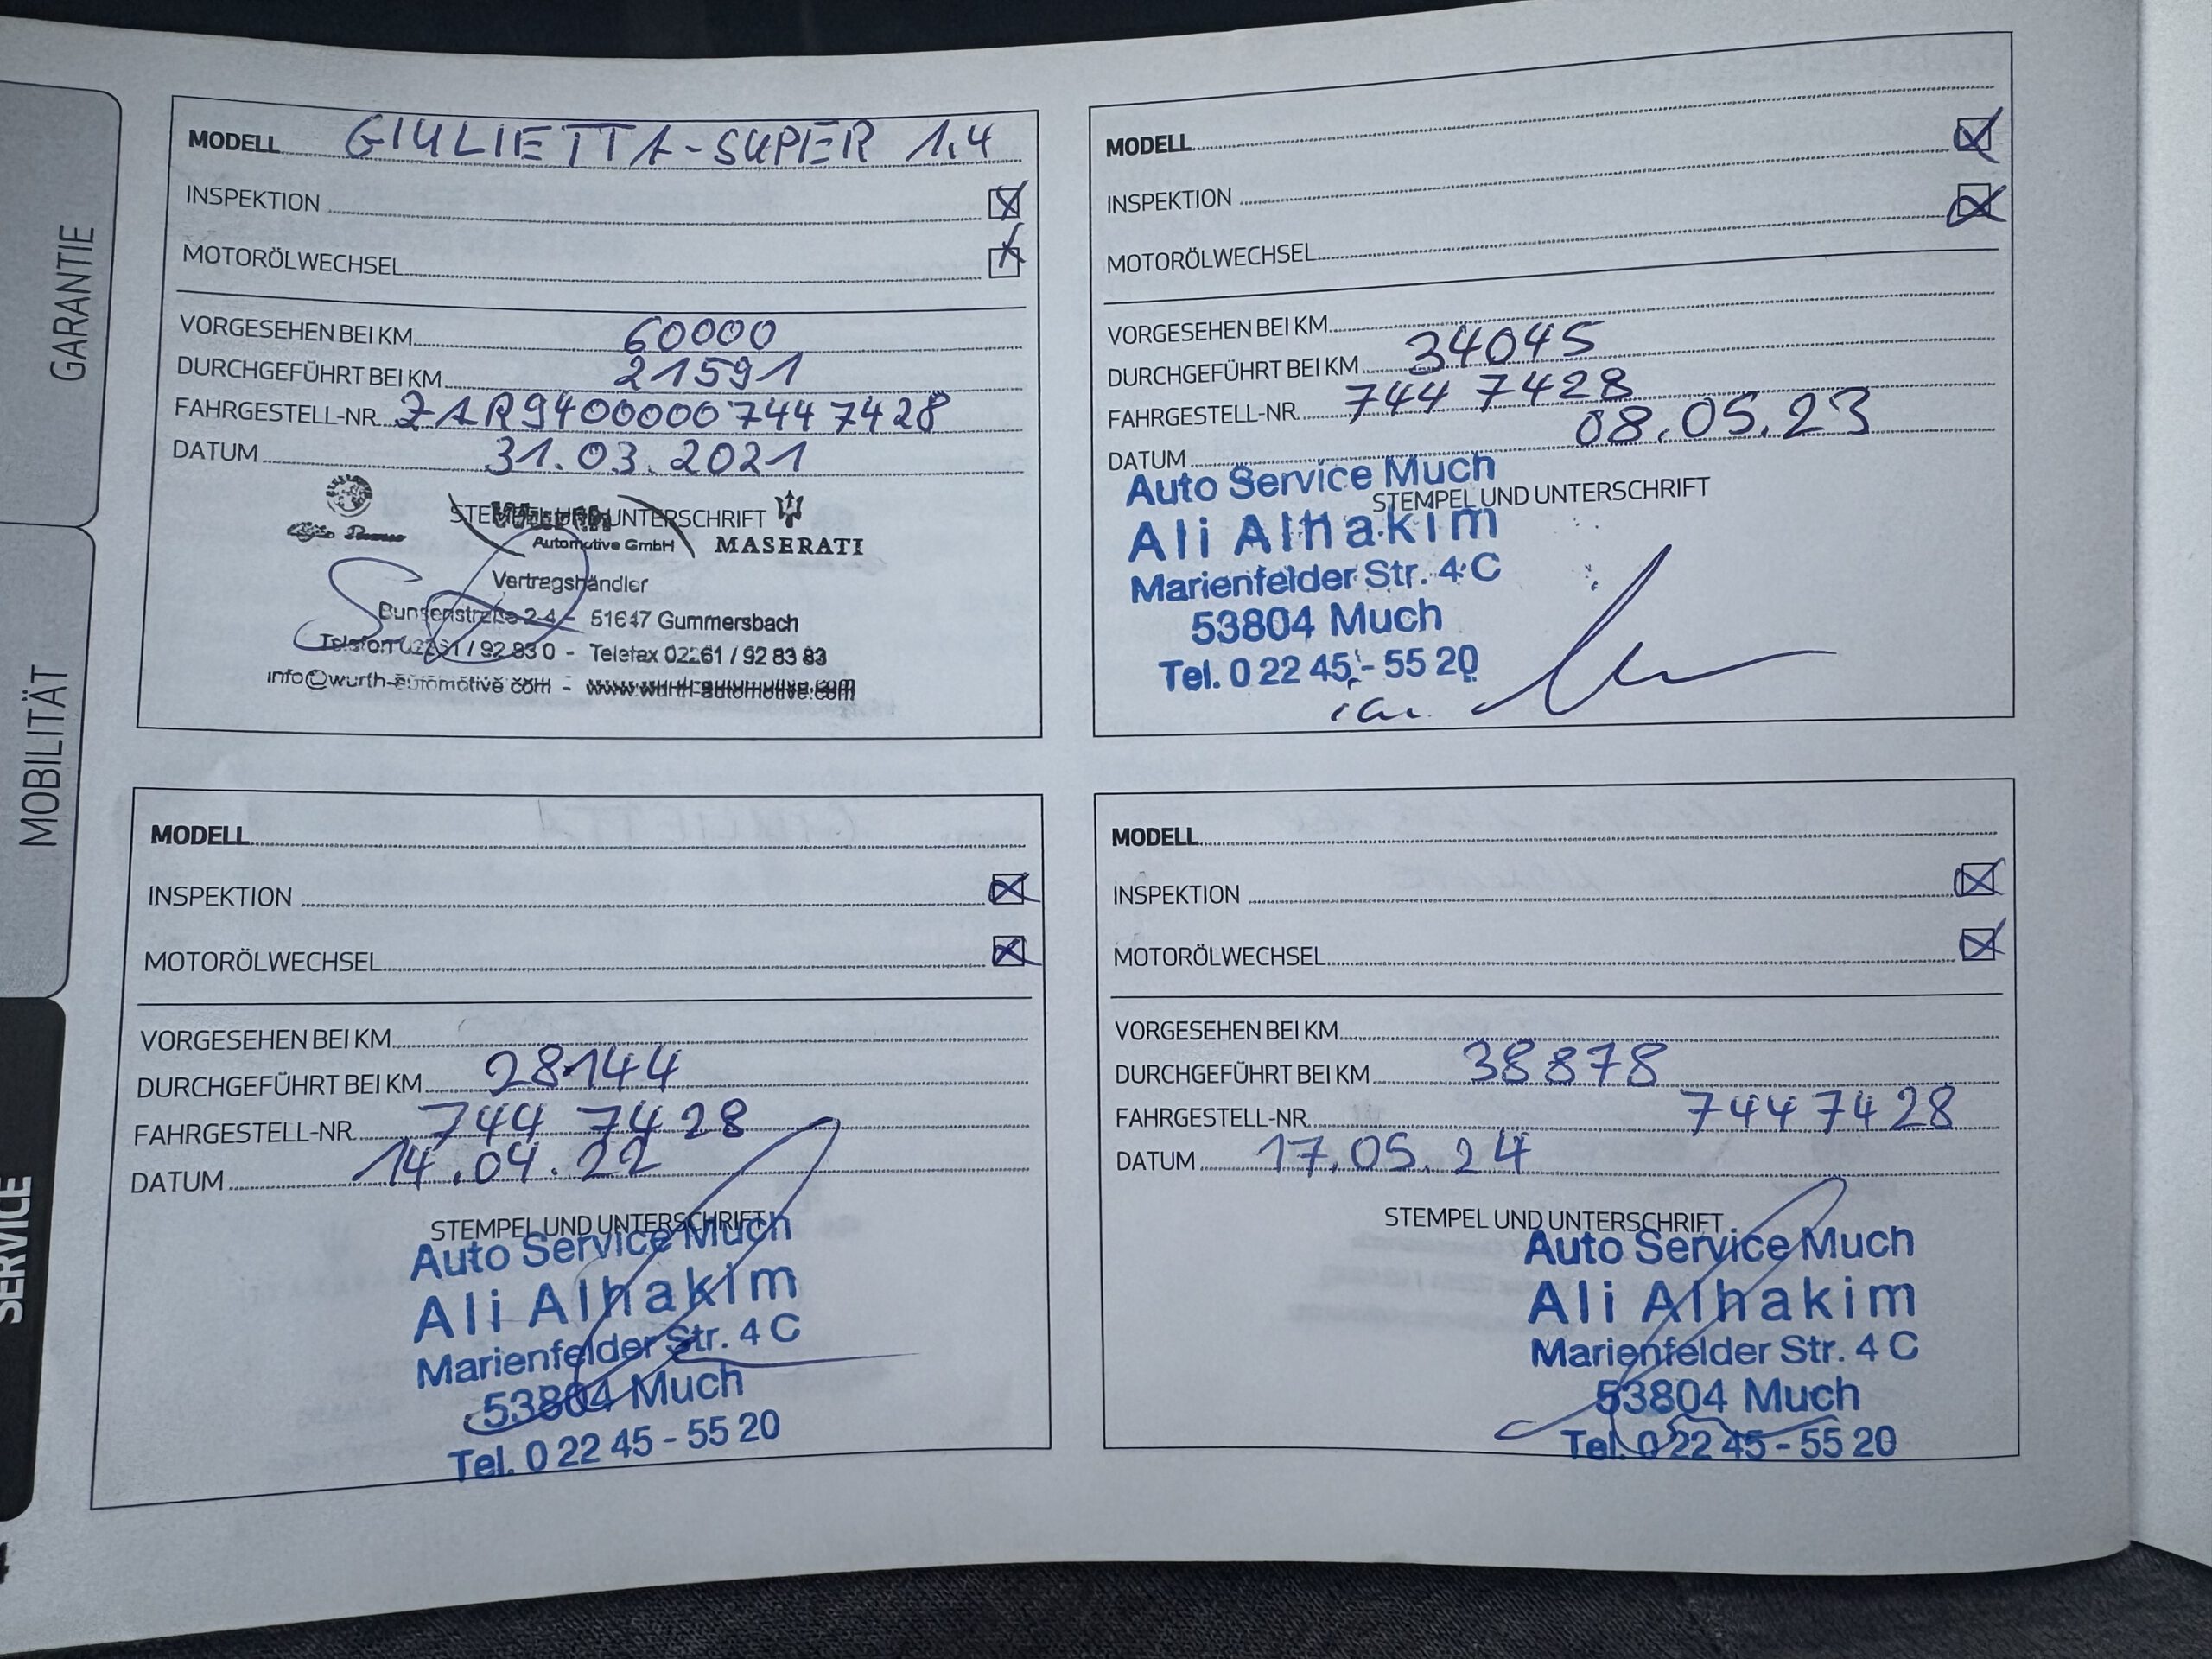 GARANTIE
MOBILITÄT
SERVICE
MODELL GIULIETTA-SUPER 1.4
INSPEKTION
MOTORÖLWECHSEL
VORGESEHEN BEI KM 60000
DURCHGEFÜHRT BEI KM 21591
FAHRGESTELL-NR. ZAR94000007447428
DATUM 31.03.2021
STEMPEL UND UNTERSCHRIFT
Alfa Romeo
Automotive GmbH MASERATI
Vertragshändler
Bunsenstraße 2-4 - 51647 Gummersbach
Telefon 02261 / 92 83 0 - Telefax 02261 / 92 83 83
info@wurth-automotive.com - www.wurth-automotive.com
MODELL
INSPEKTION
MOTORÖLWECHSEL
VORGESEHEN BEI KM
DURCHGEFÜHRT BEI KM 34045
FAHRGESTELL-NR. 744 7428
DATUM 08.05.23
STEMPEL UND UNTERSCHRIFT
Auto Service Much
Ali Alhakim
Marienfelder Str. 4 C
53804 Much
Tel. 0 22 45 - 55 20
MODELL
INSPEKTION
MOTORÖLWECHSEL
VORGESEHEN BEI KM
DURCHGEFÜHRT BEI KM 28144
FAHRGESTELL-NR. 744 7428
DATUM 14.04.22
STEMPEL UND UNTERSCHRIFT
Auto Service Much
Ali Alhakim
Marienfelder Str. 4 C
53804 Much
Tel. 0 22 45 - 55 20
MODELL
INSPEKTION
MOTORÖLWECHSEL
VORGESEHEN BEI KM
DURCHGEFÜHRT BEI KM 38878
FAHRGESTELL-NR. 7447428
DATUM 17.05.24
STEMPEL UND UNTERSCHRIFT
Auto Service Much
Ali Alhakim
Marienfelder Str. 4 C
53804 Much
Tel. 0 22 45 - 55 20